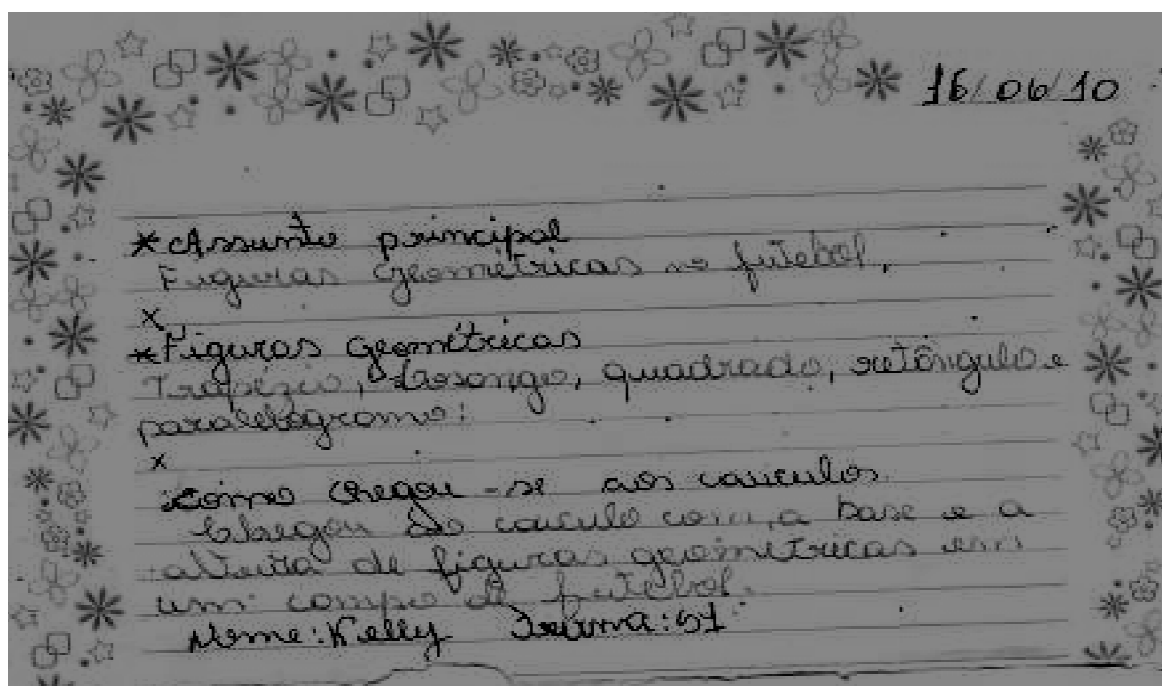 16/06/10
*Assunto principal
Figuras geométricas no futebol.
x
*Figuras geométricas
Trapézio, losongo, quadrado, retângulo e
paralelogromo:
x
como chegou-se aos cauculos
Chegou ao cauculo com, a base e a
de figuras geometricas em
um compo de futebol.
Nome: Kelly Turma: 51